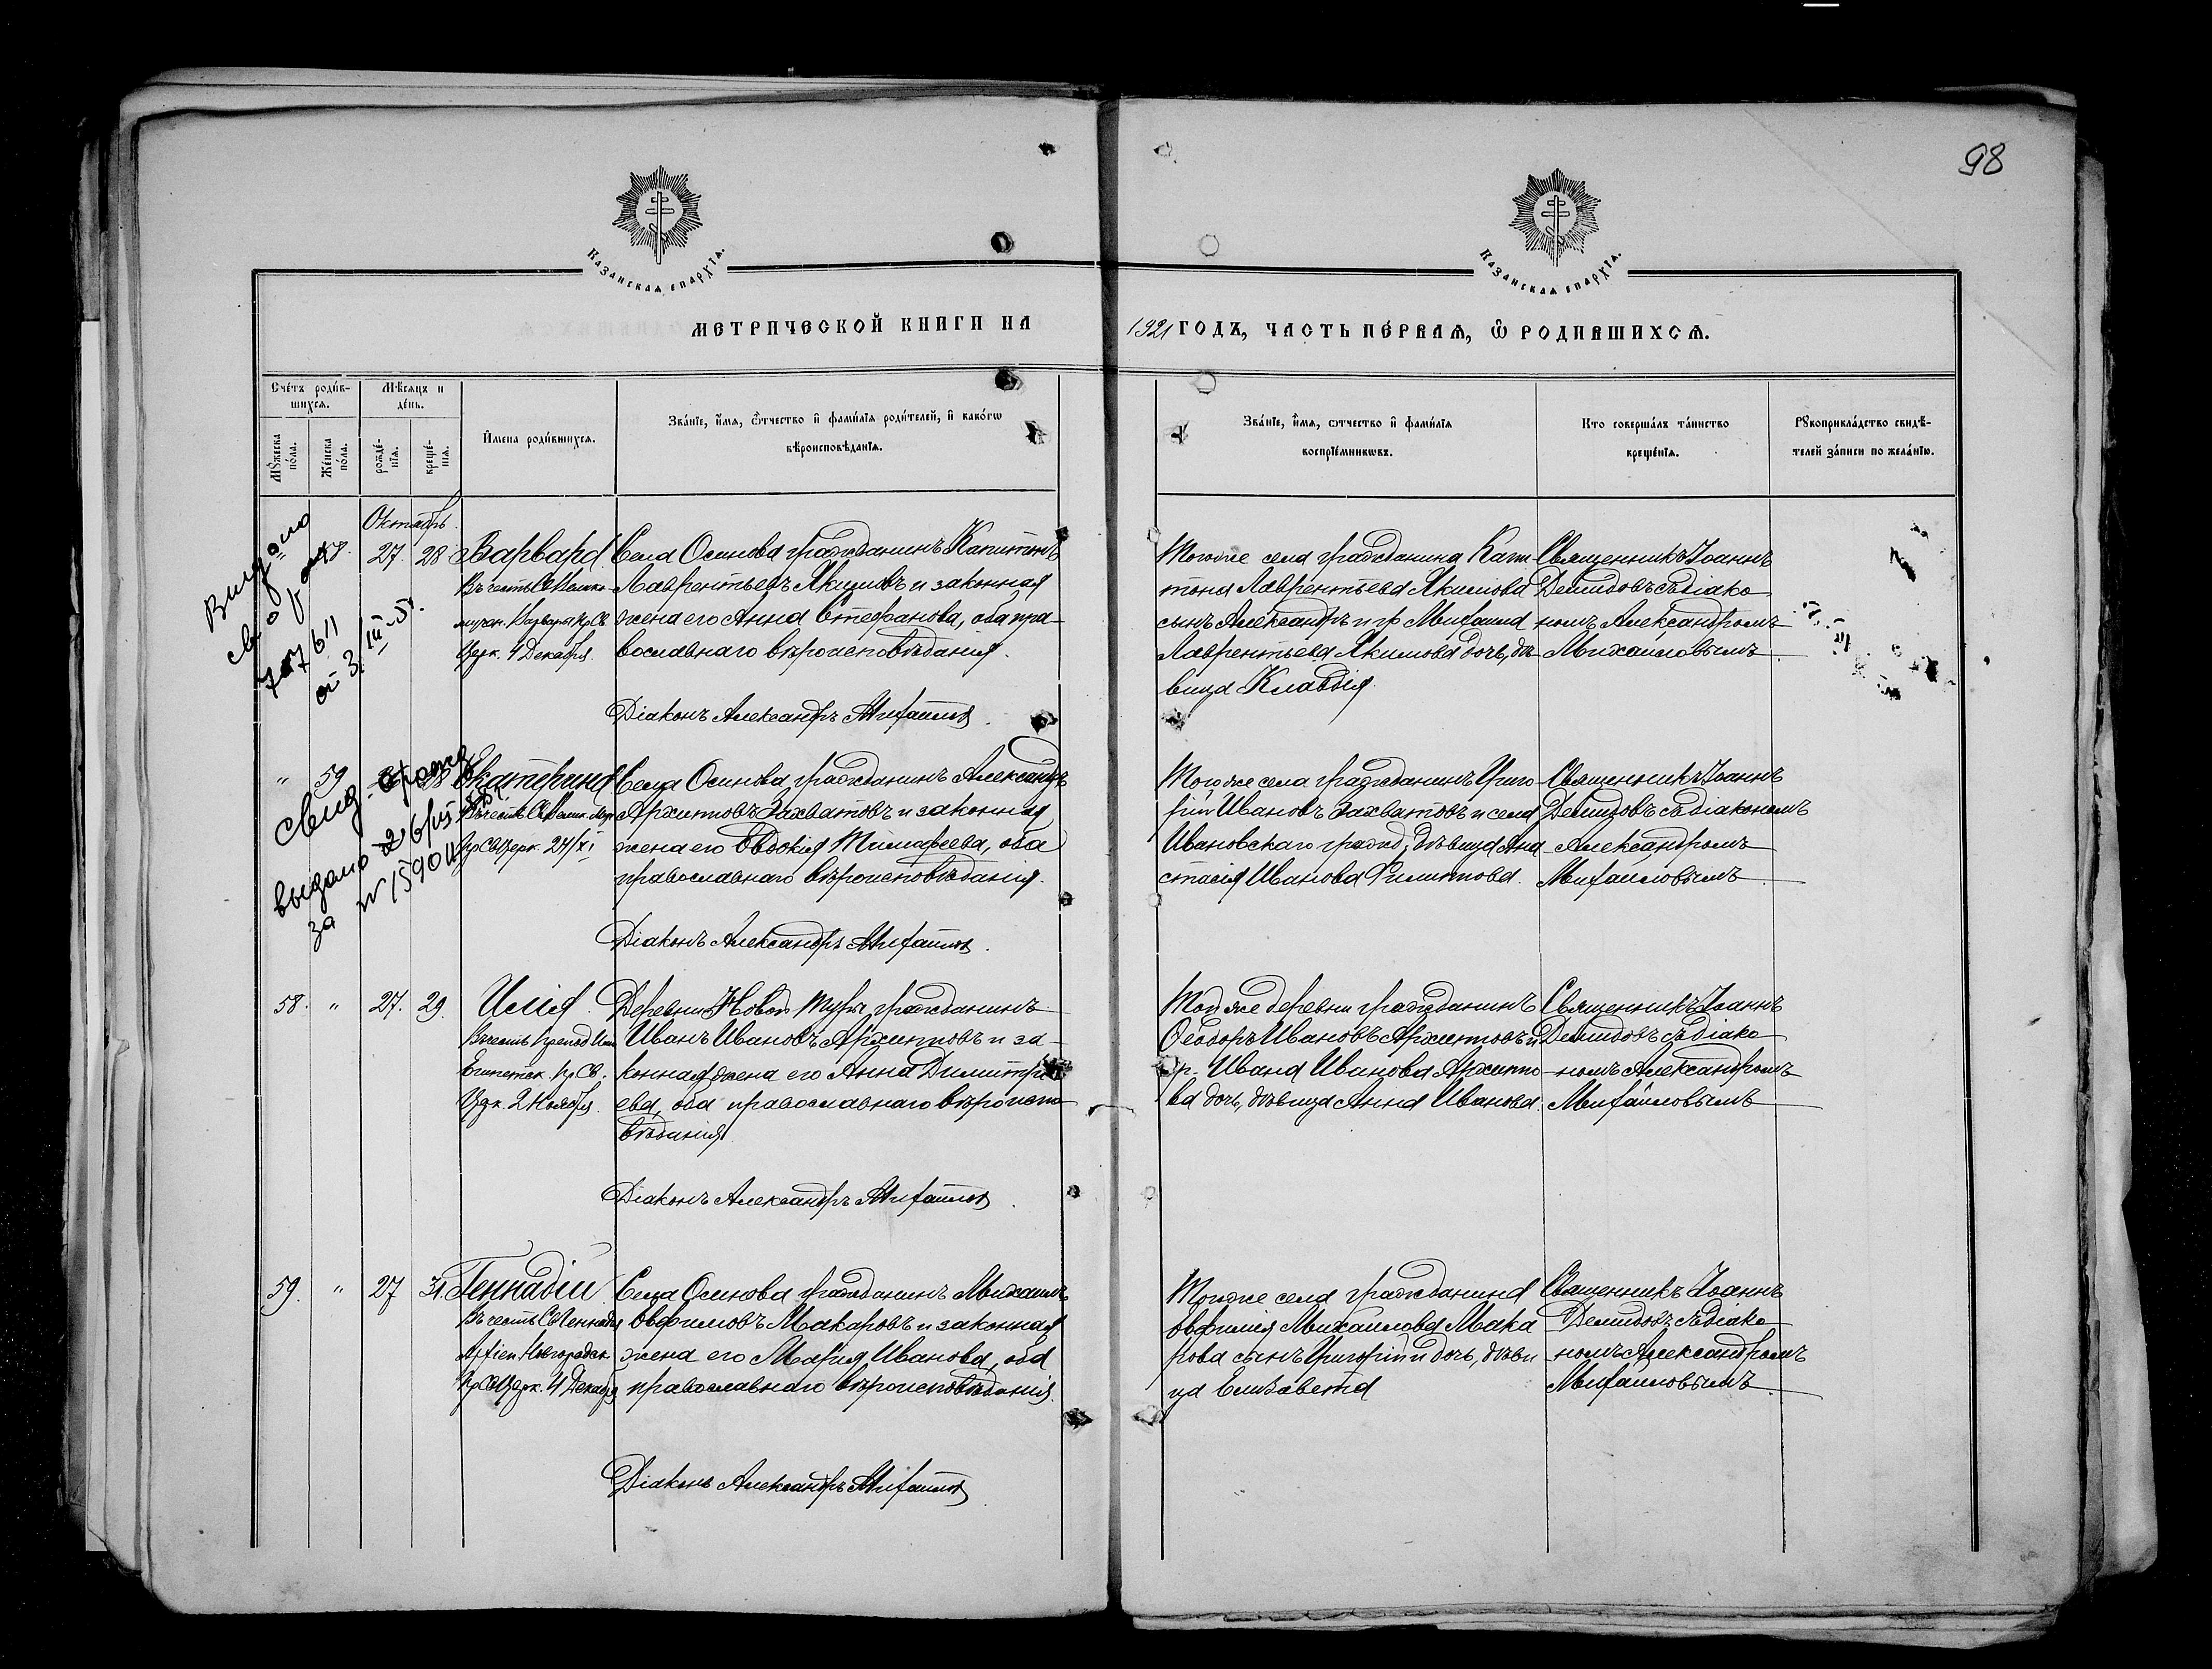 98
Казанская епархїѧ.
Казанская епархїѧ.
МЕТРИЧЕСКОЙ КНИГИ НА
1921 ГОДЪ, ЧАСТЬ ПЕ́РВАЯ, Ѡ РОДИВШИХСѦ.
Сче́тъ роди́в-
шихсѧ.
Мѣ́сяцъ и
де́нь.
Мꙋ́жеска
по́ла.
Же́нска
по́ла.
рожде́-
нїѧ.
креще́-
нїѧ.
И҆мена роди́вшихсѧ.
Зва́нїе, и҆́мѧ, ѿтчество и҆ фами́лїѧ роди́телей, и҆ како́гѡ
вѣроисповѣ́данїѧ.
Зва́нїе, и҆́мѧ, ѿтчество и҆ фами́лїѧ
воспрїе́мникѡвъ.
Кто соверша́лъ та́инство
креще́нїѧ.
Рꙋкоприкла́дство свидѣ́-
телей за́писи по жела́нїю.
Октябрь.
" 27. 28 Варвара
Въ честь Св. Велико-
мучен. Варвары Пр. Св.
Церк. 4 Декабря.
Села Осинова гражданинъ Капитонъ
Лаврентьевъ Якимовъ и законная
жена его Анна Стефанова, оба пра-
вославнаго вѣроисповѣданія.
Діаконъ Александръ Михайлов.
Тогоже села гражданина Капи-
тона Лаврентьева Якимова
сынъ Александръ и гр. Михаила
Лаврентьева Якимова дочь, дѣ-
вица Клавдія.
Священникъ Іоаннъ
Демидовъ съ діако-
номъ Александромъ
Михайловымъ.
Выдано
от 3/III-51.
" 59 Екатерина
Церк. 24/XI
Села Осинова гражданинъ Александръ
Архиповъ Захватовъ и законная
жена его Евдокия Тимофеева, оба
православнаго вѣроисповѣданія.
Діаконъ Александръ Михайлов.
Тогоже села гражданинъ Григо-
рій Ивановъ Захватовъ и села
Ивановскаго гражд. дѣвица Ана-
стасія Иванова Филиппова.
Священникъ Іоаннъ
Демидовъ съ діакономъ
Александромъ
Михайловымъ.
Свид. о рожд.
выдано 26/VII
за № 15901
58. " 27. 29. Илія.
Въ честь Препод. Иліи
Египетск. Пр. Св.
Церк. 2 Ноября.
Деревни Новой Туры гражданинъ
Иванъ Ивановъ Архиповъ и за-
конная жена его Анна Димитрі-
ева, оба православнаго вѣроиспо-
вѣданія.
Діаконъ Александръ Михайлов.
Той же деревни гражданинъ
Ѳеодоръ Ивановъ Архиповъ и
гр. Ивана Иванова Архипо-
ва дочь, дѣвица Анна Иванова.
Священникъ Іоаннъ
Демидовъ съ діако-
номъ Александромъ
Михайловымъ
59. " 27 31. Геннадій
Въ честь Св. Геннадія
Архіеп. Новгородск.
Пр. Св. Церк. 4 Декабря
Села Осинова гражданинъ Михаилъ
Евфимовъ Макаровъ и законная
жена его Мария Иванова, оба
православнаго вѣроисповѣданія.
Діаконъ Александръ Михайлов
Тогоже села гражданина
Евфимія Михайлова Мака-
рова сынъ Григорій и дочь, дѣви-
ца Елизавета
Священникъ Іоаннъ
Демидовъ съ діако-
номъ Александромъ
Михайловымъ.